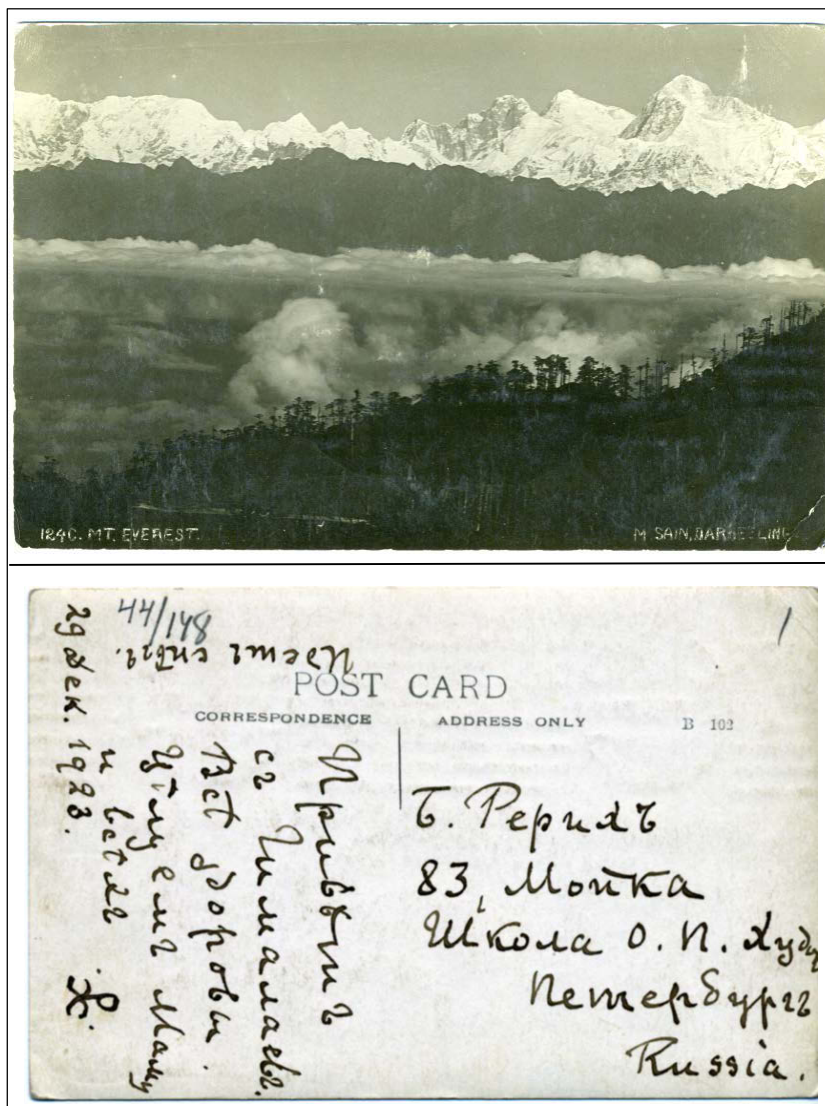 124C. MT. EVEREST.
M SAIN, DARJEELING
44/148
1
POST CARD
CORRESPONDENCE
ADDRESS ONLY
B 102
Привѣтъ
съ Гималаевъ.
Всѣ здоровы.
Цѣлуемъ Маму
и всѣхъ
29 Дек. 1923.
Идетъ снѣгъ.
Б. Рерихъ
83, Мойка
Школа О. П. Худ
Петербургъ
Russia.